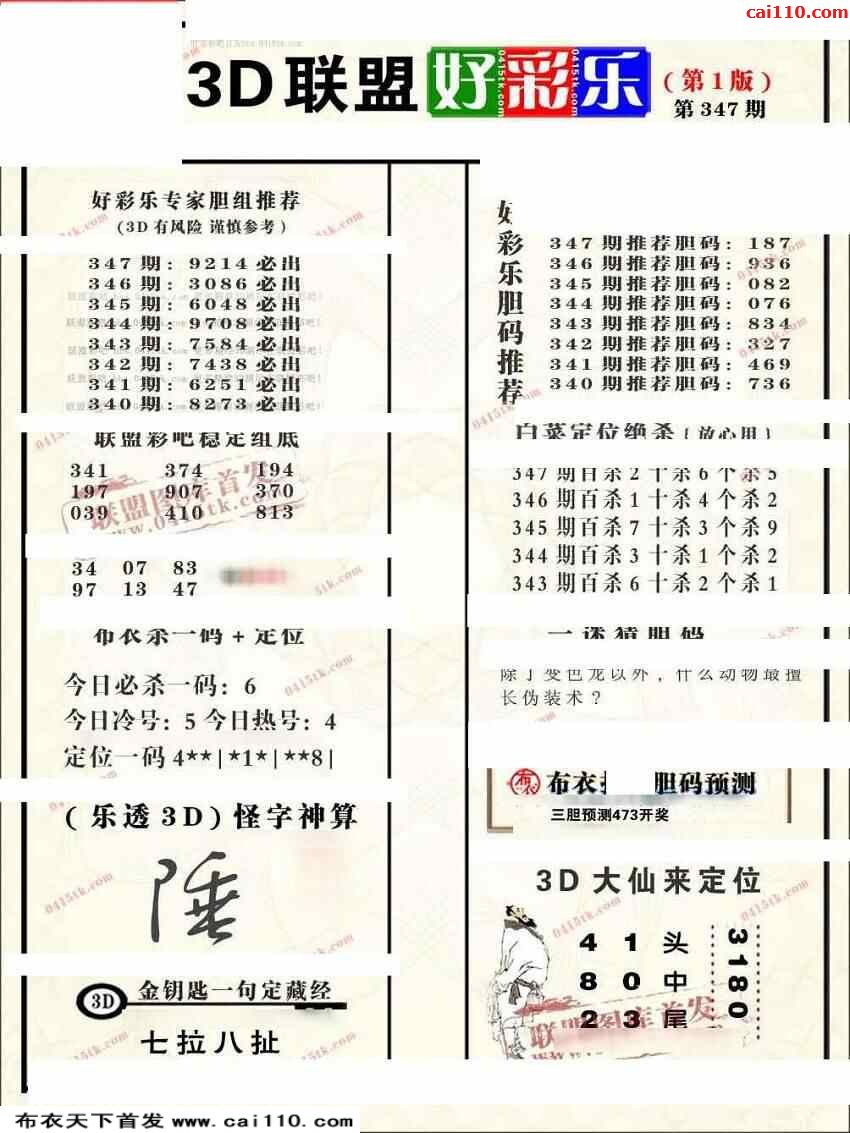 cai110.com
3D联盟 好彩乐
0415tk.com 0415tk.com 0415tk.com
(第1版)
第347期
好彩乐专家胆组推荐
(3D有风险 谨慎参考)
347期:9214必出
346期:3086必出
345期:6048必出
344期:9708必出
343期:7584必出
342期:7438必出
341期:6251必出
340期:8273必出
联盟彩吧稳定组底
341 374 194
197 907 370
039 410 813
联盟图库首发
www.0415tk.com
34 07 83
97 13 47
布衣杀一码+定位
今日必杀一码:6
今日冷号:5 今日热号:4
定位一码4**|*1*|**8|
(乐透3D)怪字神算
陲
3D 金钥匙一句定藏经
七拉八扯
好彩乐胆码推荐
347期推荐胆码:187
346期推荐胆码:936
345期推荐胆码:082
344期推荐胆码:076
343期推荐胆码:834
342期推荐胆码:327
341期推荐胆码:469
340期推荐胆码:736
白菜定位绝杀(放心用)
347期百杀2十杀6个杀5
346期百杀1十杀4个杀2
345期百杀7十杀3个杀9
344期百杀3十杀1个杀2
343期百杀6十杀2个杀1
一迷猜胆码
除了变色龙以外,什么动物最擅
长伪装术?
布衣 布衣 胆码预测
三胆预测473开奖
3D大仙来定位
4 1 头
8 0 中
2 3 尾
3180
联盟图库首发
0415tk.com
布衣天下首发 www.cai110.com